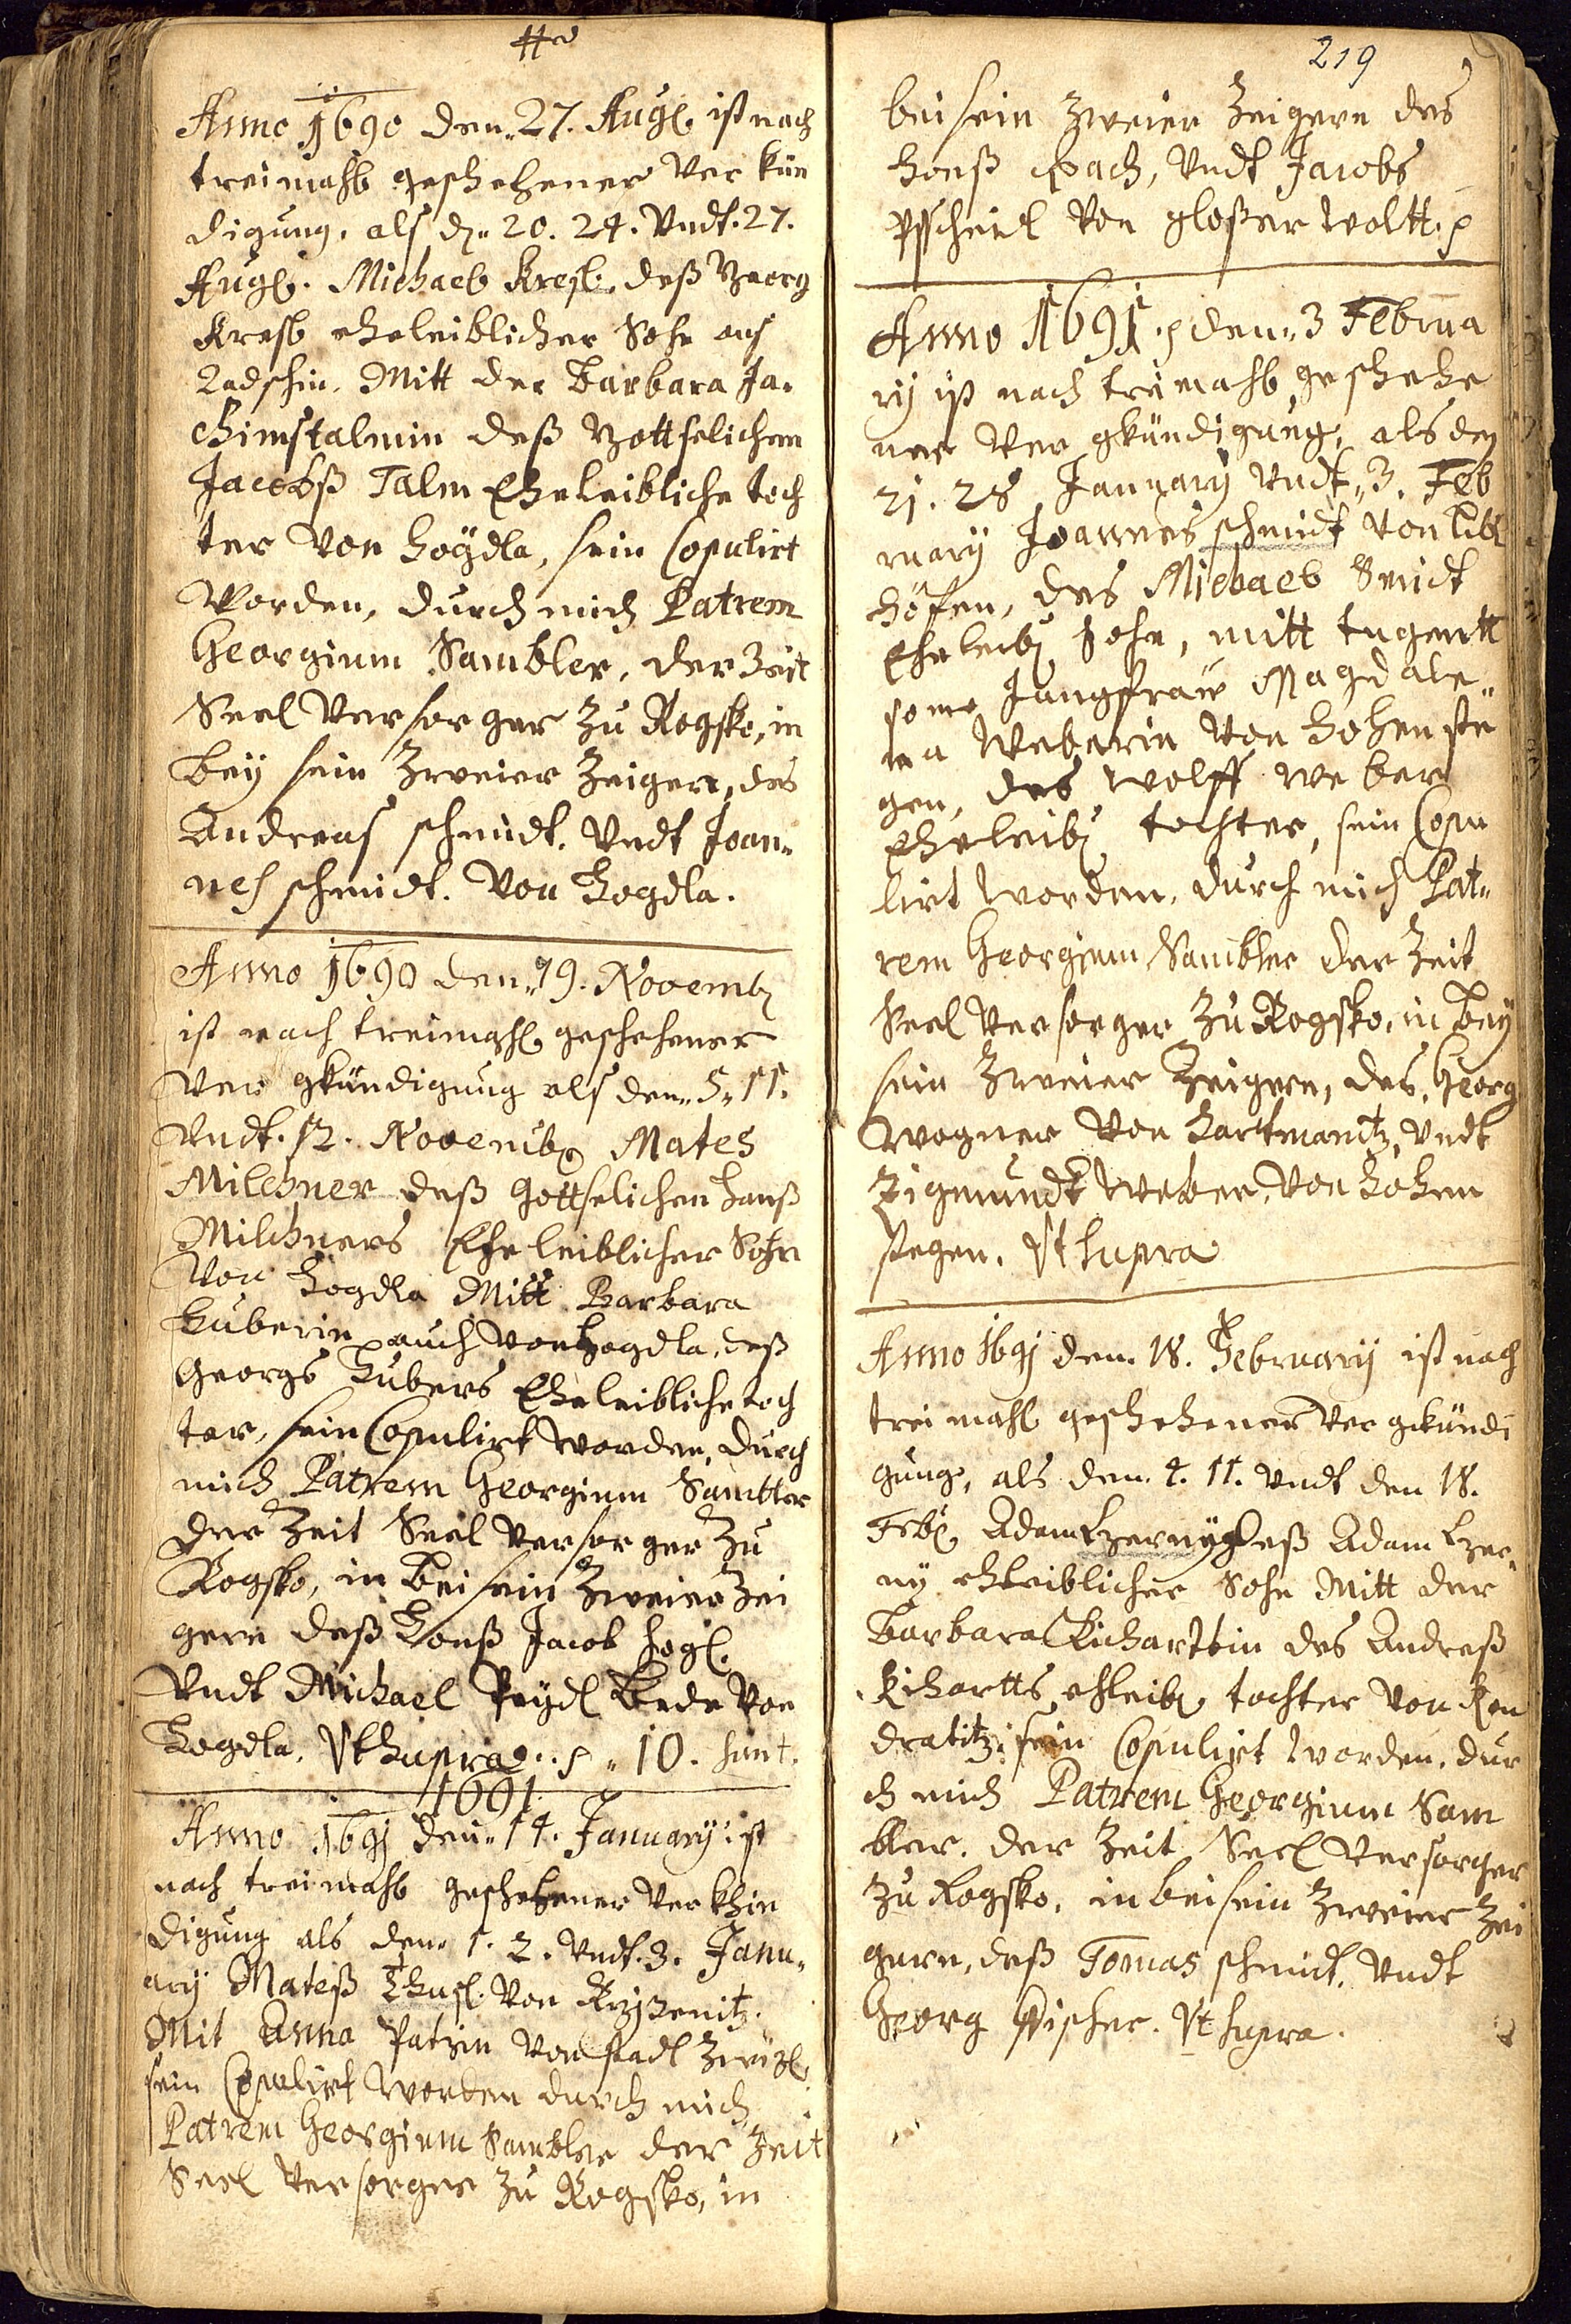 Anno 1690 den 27. Aug. ist nach
treimahl geschehener Ver kün
digung, als d. 20. 24. Vndt. 27.
Aug. Michael Kresl. deß Georg
Kresl eheleiblicher Sohn aus
Radschin. Mitt der Barbara Ja.
chimstalmin deß Gottselichem
Jacobß Talm Eheleibliche toch
ter Von Hoÿdla, sein Copulirt
Worden, durch mich Patrem
Georgium Sambler, der Zeit
Seel Versorger Zu Rogsko, in
Beÿ sein Zweier Zeigen, des
Andreas schmidt. Vndt Joan„
nes schmidt. Von Hogdla.
Anno 1690 den„ 19. Novemb
ist nach treimahl geschehener
Ver gkündigung als den„ 5„ 11.
Vndt. 12. Novemb Mates
Milchner deß Gottselichen Hanß
Milchners Eheleiblicher Sohn
Von Hogdla Mitt Barbara
Huberin auch von Hogdla, deß
Georgs Hubers Eheleibliche toch
ter, sein Copulirt worden, durch
mich Patrem Georgium Sambler
der Zeit Seel Versorger Zu
Rogsko, in Bei sein Zweier Zei
gern deß Hanß Jacob
Vndt Michael Bede Von
Hogdla. Vt supra. 10.
1691
Anno 1691 den„ 14. January ist
nach treimahl geschehener Ver khin
digung als den„ 1. 2. Vndt. 3. Janu„
ary Mateß Von
Mit Anna Von
sein Copulirt Worden durch mich
Patrem Georgium Sambler der Zeit
Seel Versorger Zu Rogsko, in
219
bei sein Zweier Zeigern des
Hanß Bach, Vndt Jacobs
Von
Anno 1691. den„ 3 Februa
rij ist nach treimahl geschehe
ner Ver gkündigung, als den
21. 28 January Vndt„ 3. Feb
ruary Joannes schmidt Von
höfen, des Michael Smidt
Eheleib Sohn, mitt tugentt
same Jungfraw Magdale„
na Weberin Von Hohen ste
gen, des Wolff Weber
Eheleib tochter, sein Copu
lirt worden, durch mich Pat„
rem Georgium Sambler der Zeit
Seel Versorger Zu Rogsko, in Beÿ
sein Zweier Zeigern, des Georg
Wogner Von Hartmanitz, Vndt
Zigmundt Weber, Von Hohen
stegen. Vt supra
Anno 1691 den 18. February ist nach
trei mahl geschehener Ver gkündi
gung, als den 4. 11. Vndt den 18.
Feb Adam Czerny deß Adam Czer„
ny eheleiblicher Sohn Mitt der
Barbara Richarttin des Andreß
Richartts eheleib tochter Von Kon
dratitz. sein Copulirt worden. dur
ch mich Patrem Georgium Sam
bler. der Zeit Seel Versorger
Zu Rogsko, in beisein Zweier Zei
gern, deß Tomas schmidt, Vndt
Georg Fischer. Vt supra.